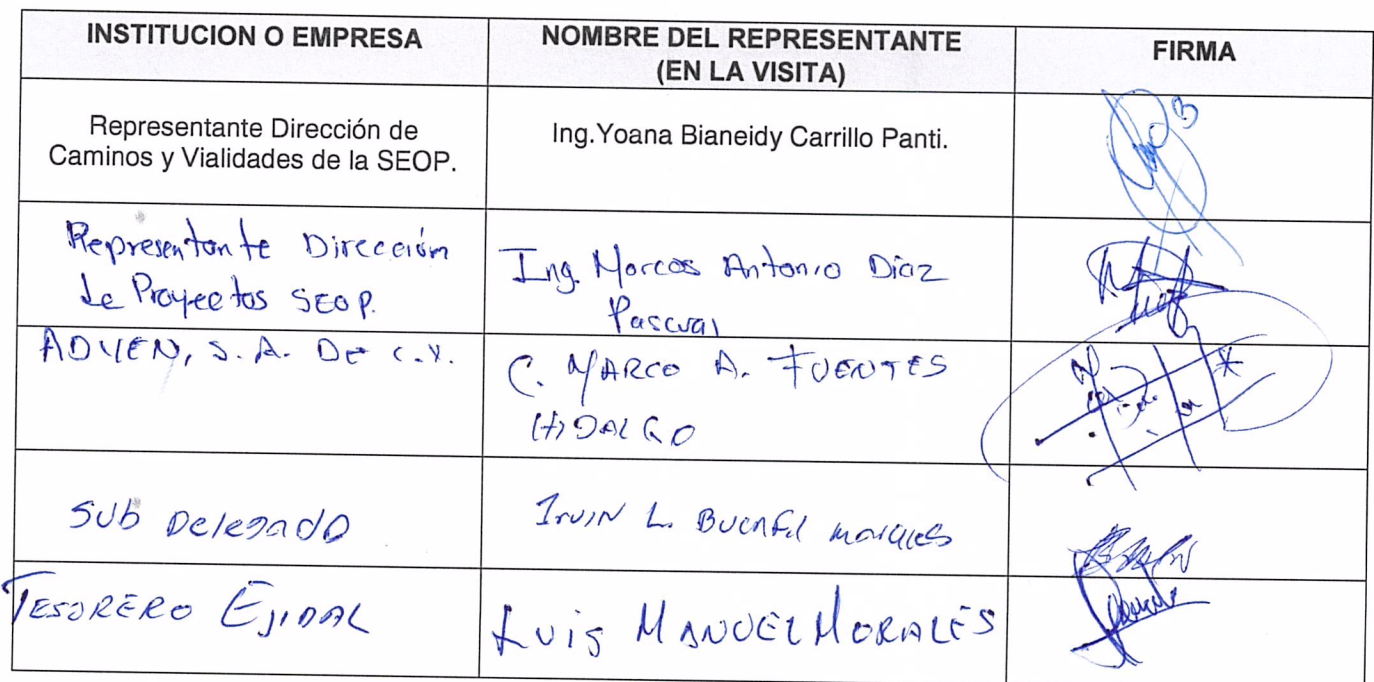 INSTITUCION O EMPRESA
NOMBRE DEL REPRESENTANTE
(EN LA VISITA)
FIRMA
Representante Dirección de
Caminos y Vialidades de la SEOP.
Ing.Yoana Bianeidy Carrillo Panti.
Representante Dirección
de Proyectos SEOP.
Ing. Marcos Antonio Díaz
Pascual
ADVEN, S.A. DE C.V.
C. MARCO A. FUENTES
HIDALGO
Sub Delegado
Irvin L. Buenfil
TESORERO EJIDAL
LUIS MANUEL MORALES